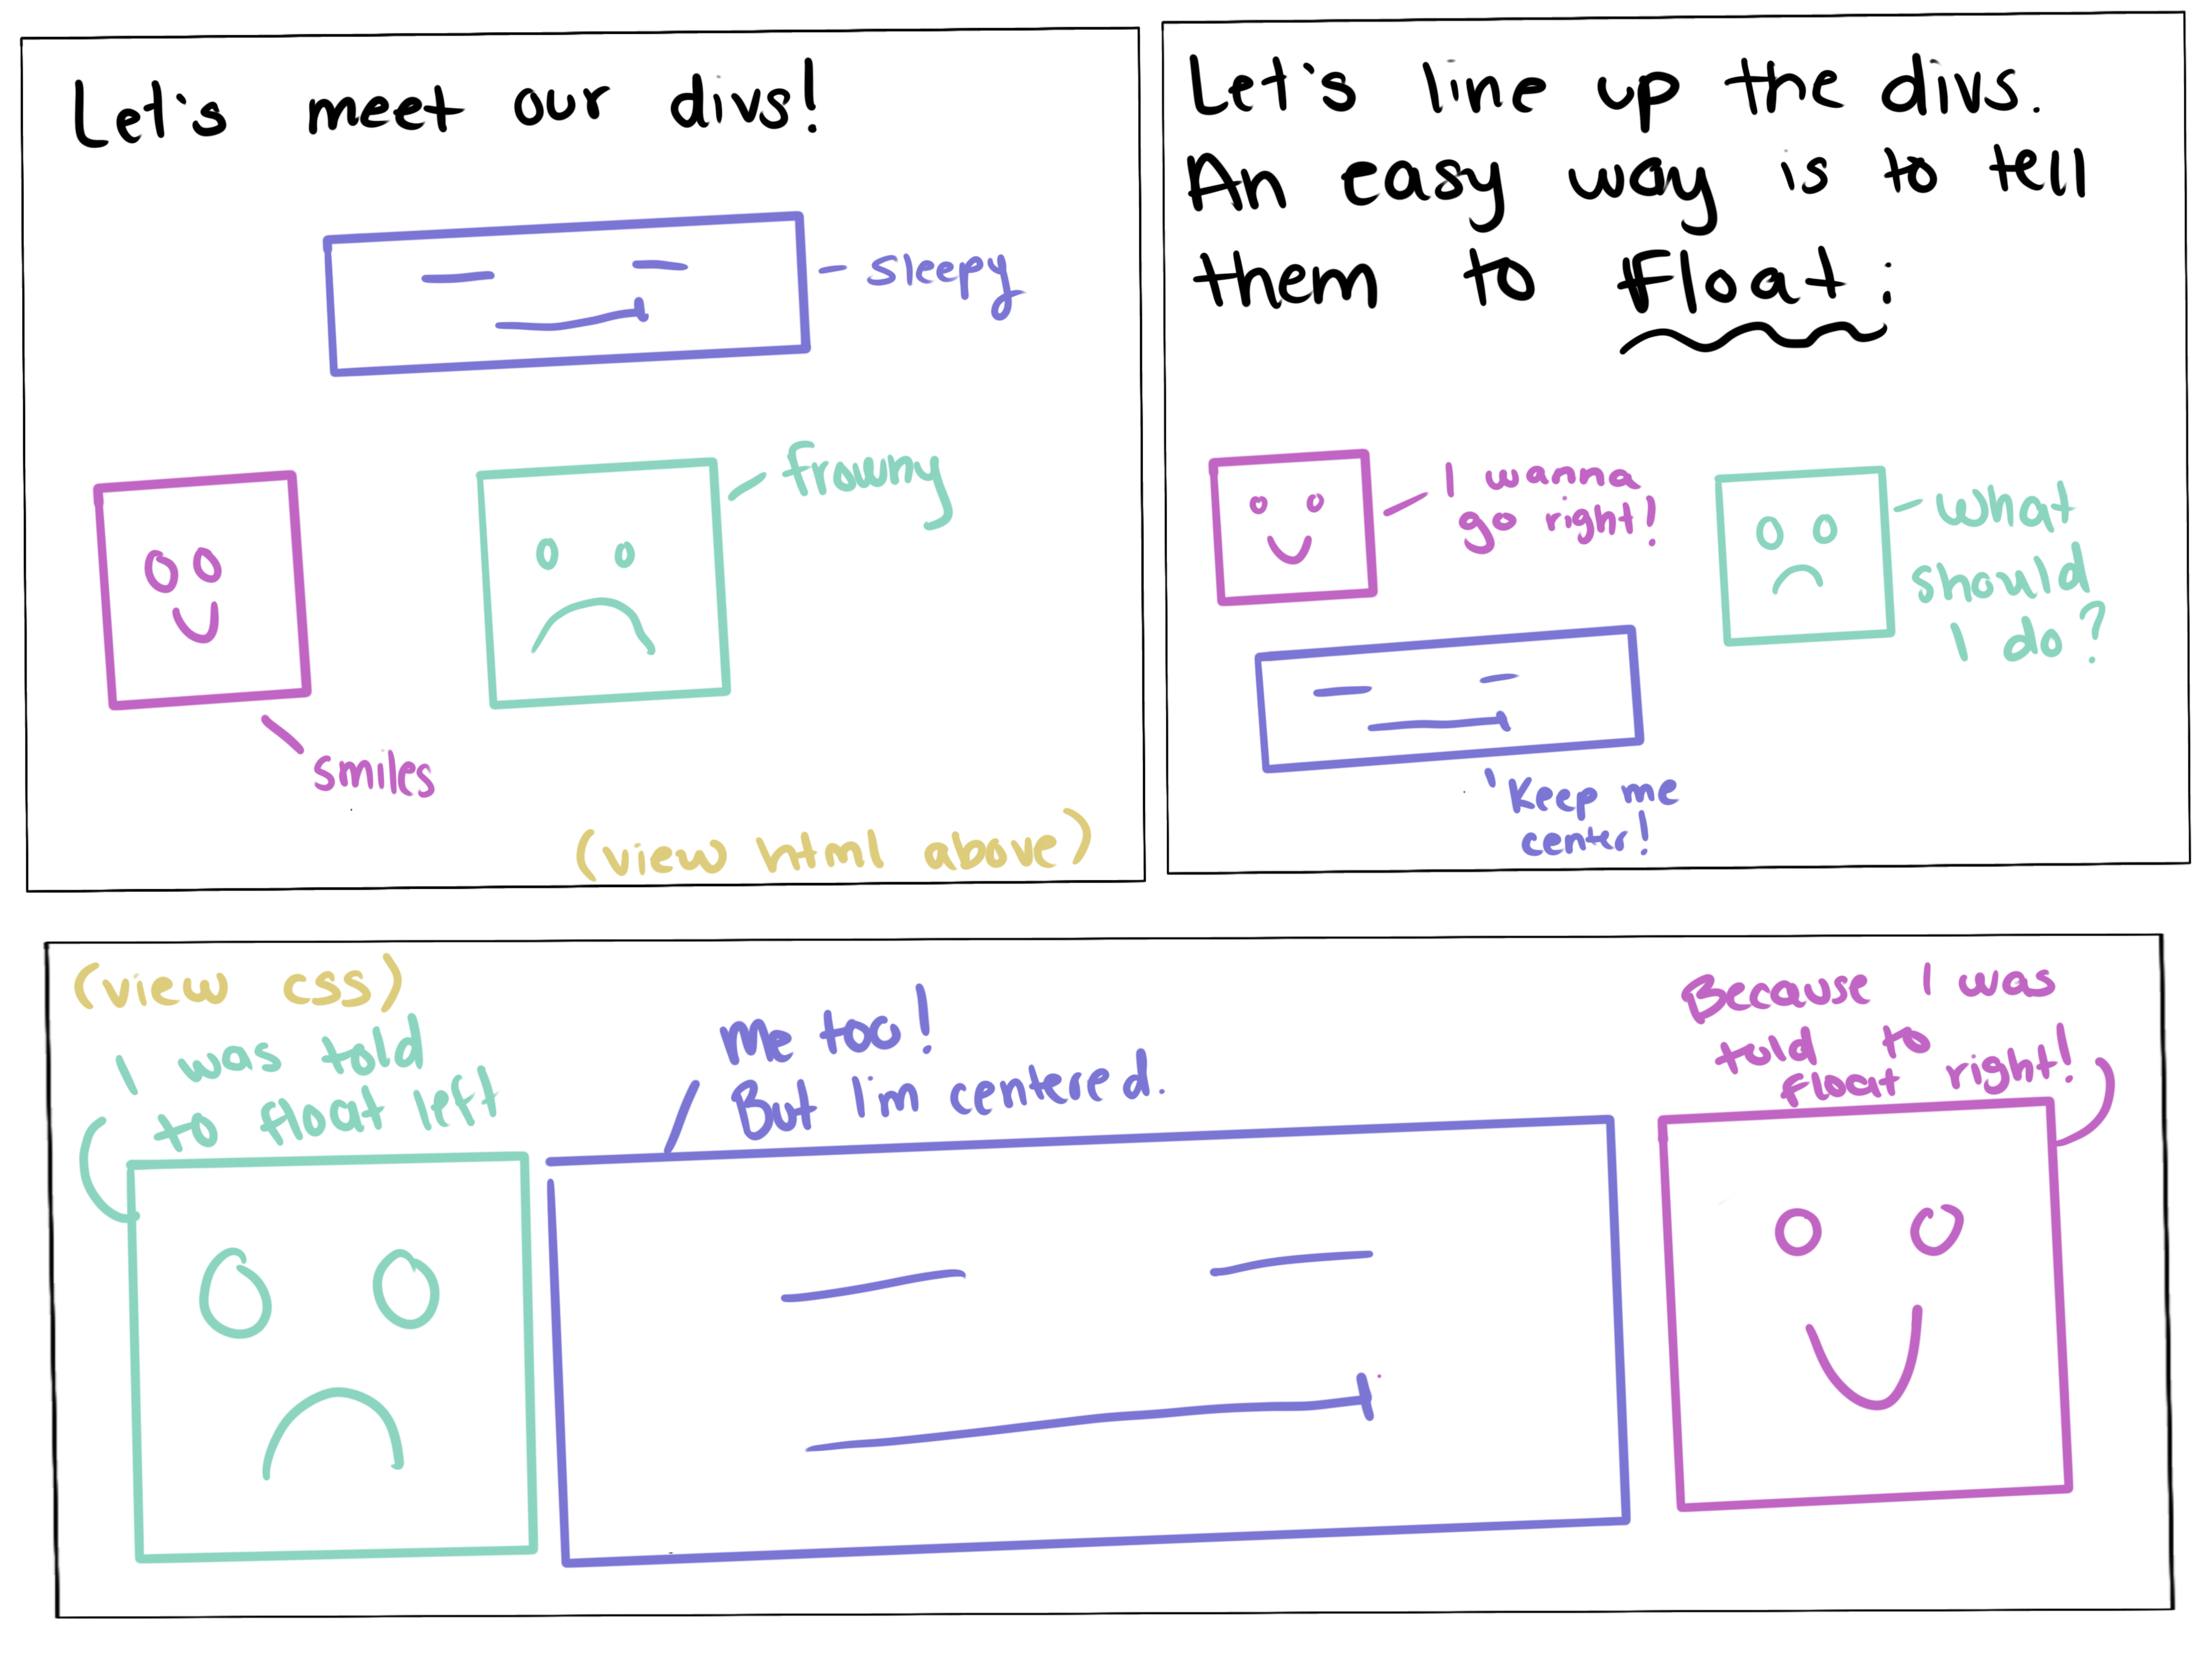 Let's meet our divs!
sleepy
frowny
smiles
(view html above)
Let's line up the divs.
An easy way is to tell
them to Float:
I wanna
go right!
What
should
I do?
Keep me
center!
(view css)
I was told
to float left
Me too!
But I'm centered.
Because I was
told to
float right!